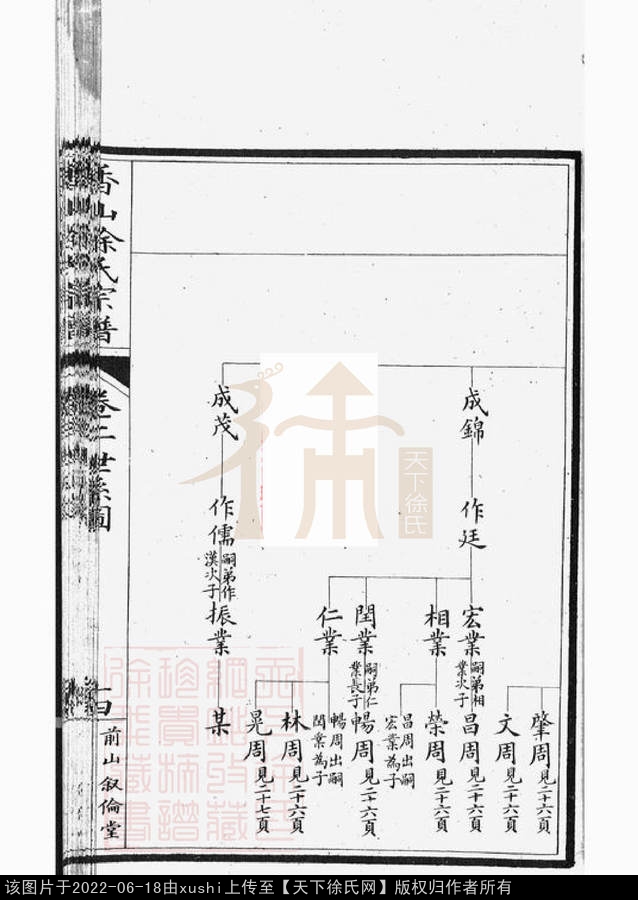 肇周見二十六頁
文周見二十六頁
成錦
作廷
宏業嗣弟相業次子
昌周見二十六頁
相業
榮周見二十六頁
昌周出嗣宏業為子
閏業嗣弟仁業長子
暢周見二十六頁
仁業
暢周出嗣閏業為子
林周見二十六頁
晃周見二十七頁
成茂
作儒嗣弟作漢次子
振業
某
香山徐氏宗譜
卷二世系圖
前山敘倫堂
天下徐氏
该图片于2022-06-18由xushi上传至【天下徐氏网】版权归作者所有